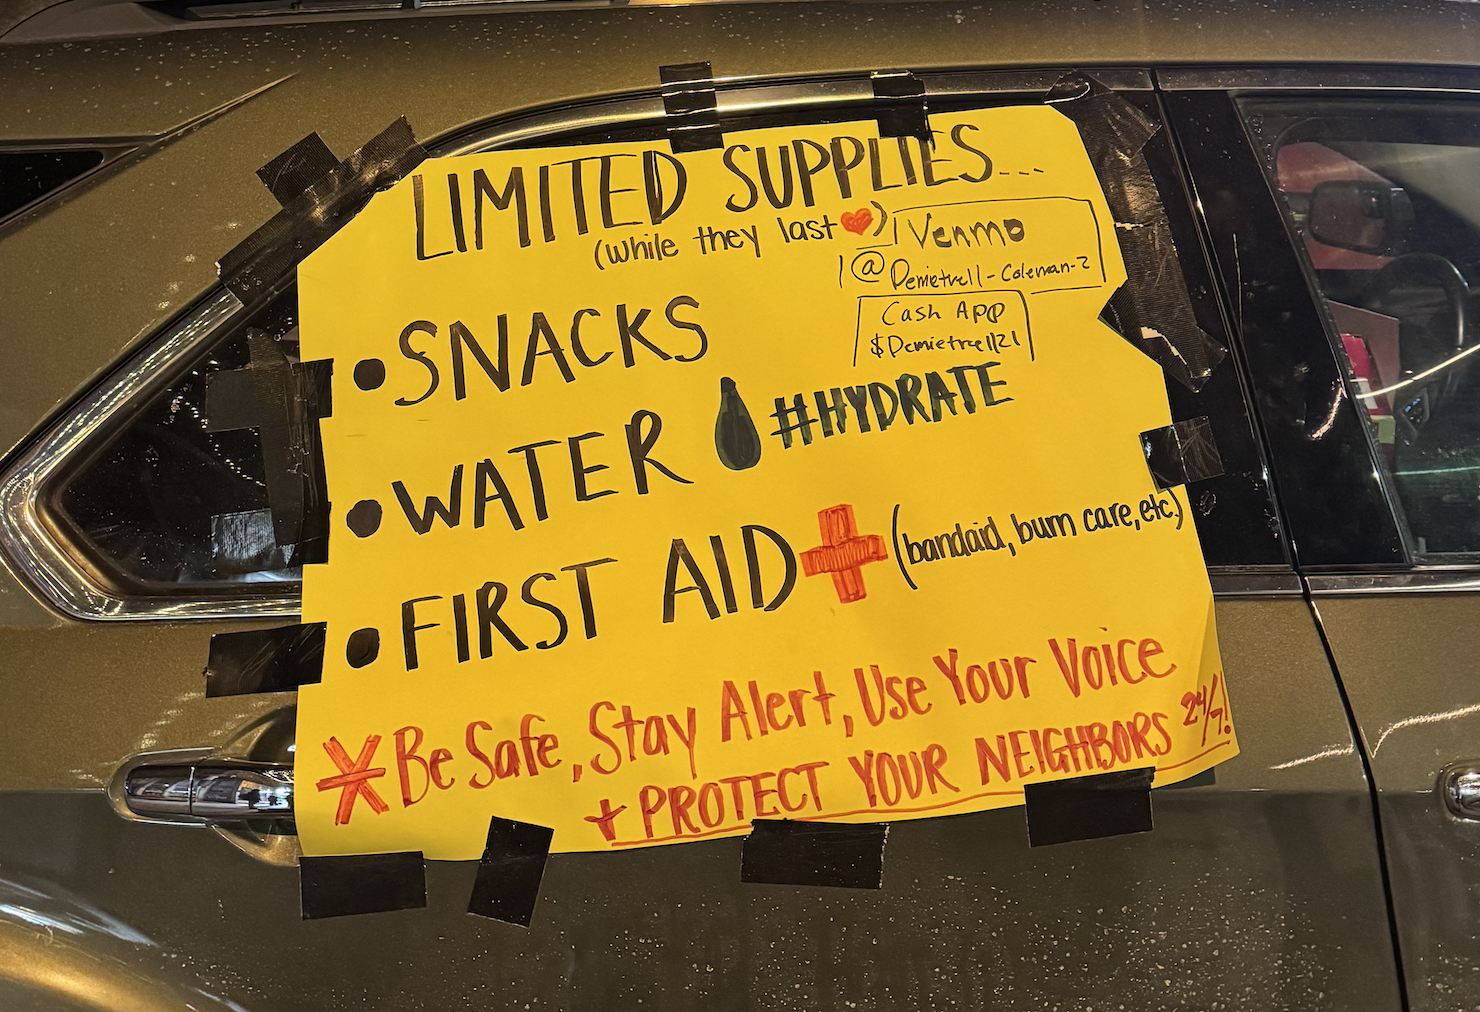 LIMITED SUPPLIES...
(while they last ❤)
Venmo
@Demietrell-Coleman-2
Cash App
$Demietrell21
• SNACKS
• WATER #HYDRATE
• FIRST AID (bandaid, burn care, etc)
* Be Safe, Stay Alert, Use Your Voice
+ PROTECT YOUR NEIGHBORS 24/7!